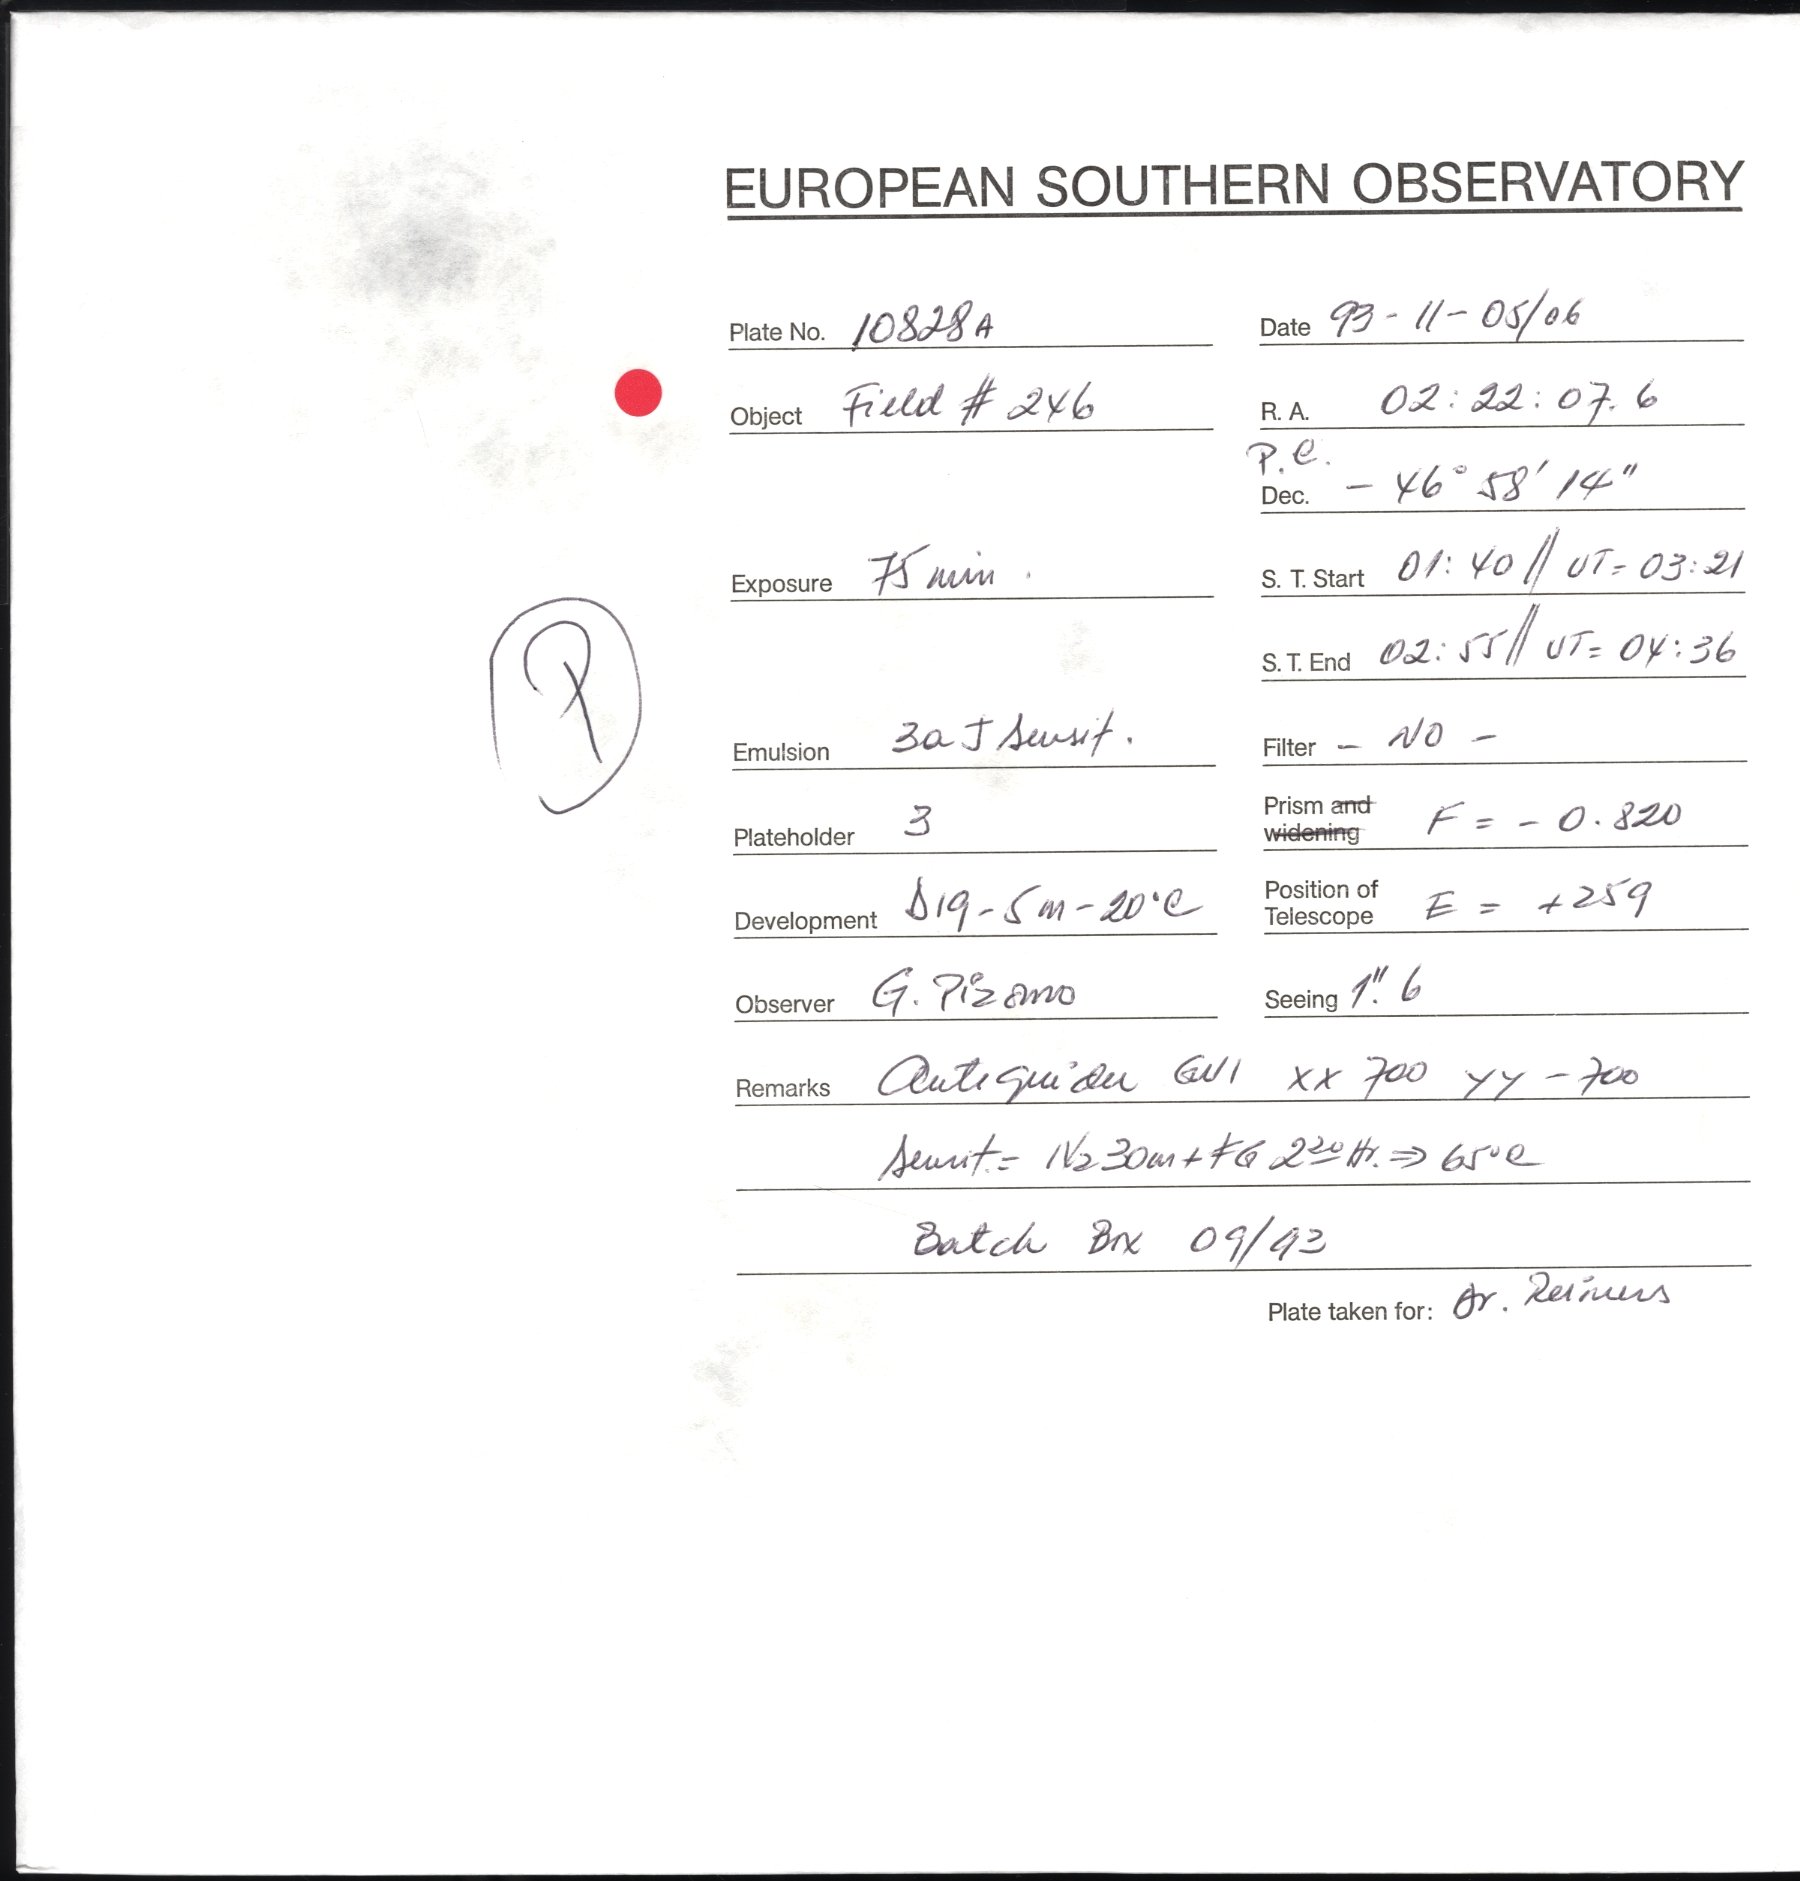 EUROPEAN SOUTHERN OBSERVATORY
Plate No. 10828A Date 93-11-05/06
Object Field # 246 R. A. 02:22:07.6
P.C.
Dec. - 46° 58' 14"
Exposure 75 min. S. T. Start 01:40 // UT= 03:21
S. T. End 02:55 // UT= 04:36
Emulsion 3a J Sensit. Filter - NO -
Plateholder 3 Prism and widening F = - 0.820
Development D19-5m-20°C Position of Telescope E = +259
Observer G. Pizarro Seeing 1".6
Remarks Autoguider GV1 XX 700 YY -700
Sensit.= N2 30m + FG 2 20 Hr. ⇒ 65°C
Batch 09/93
Plate taken for: Dr. Reimers